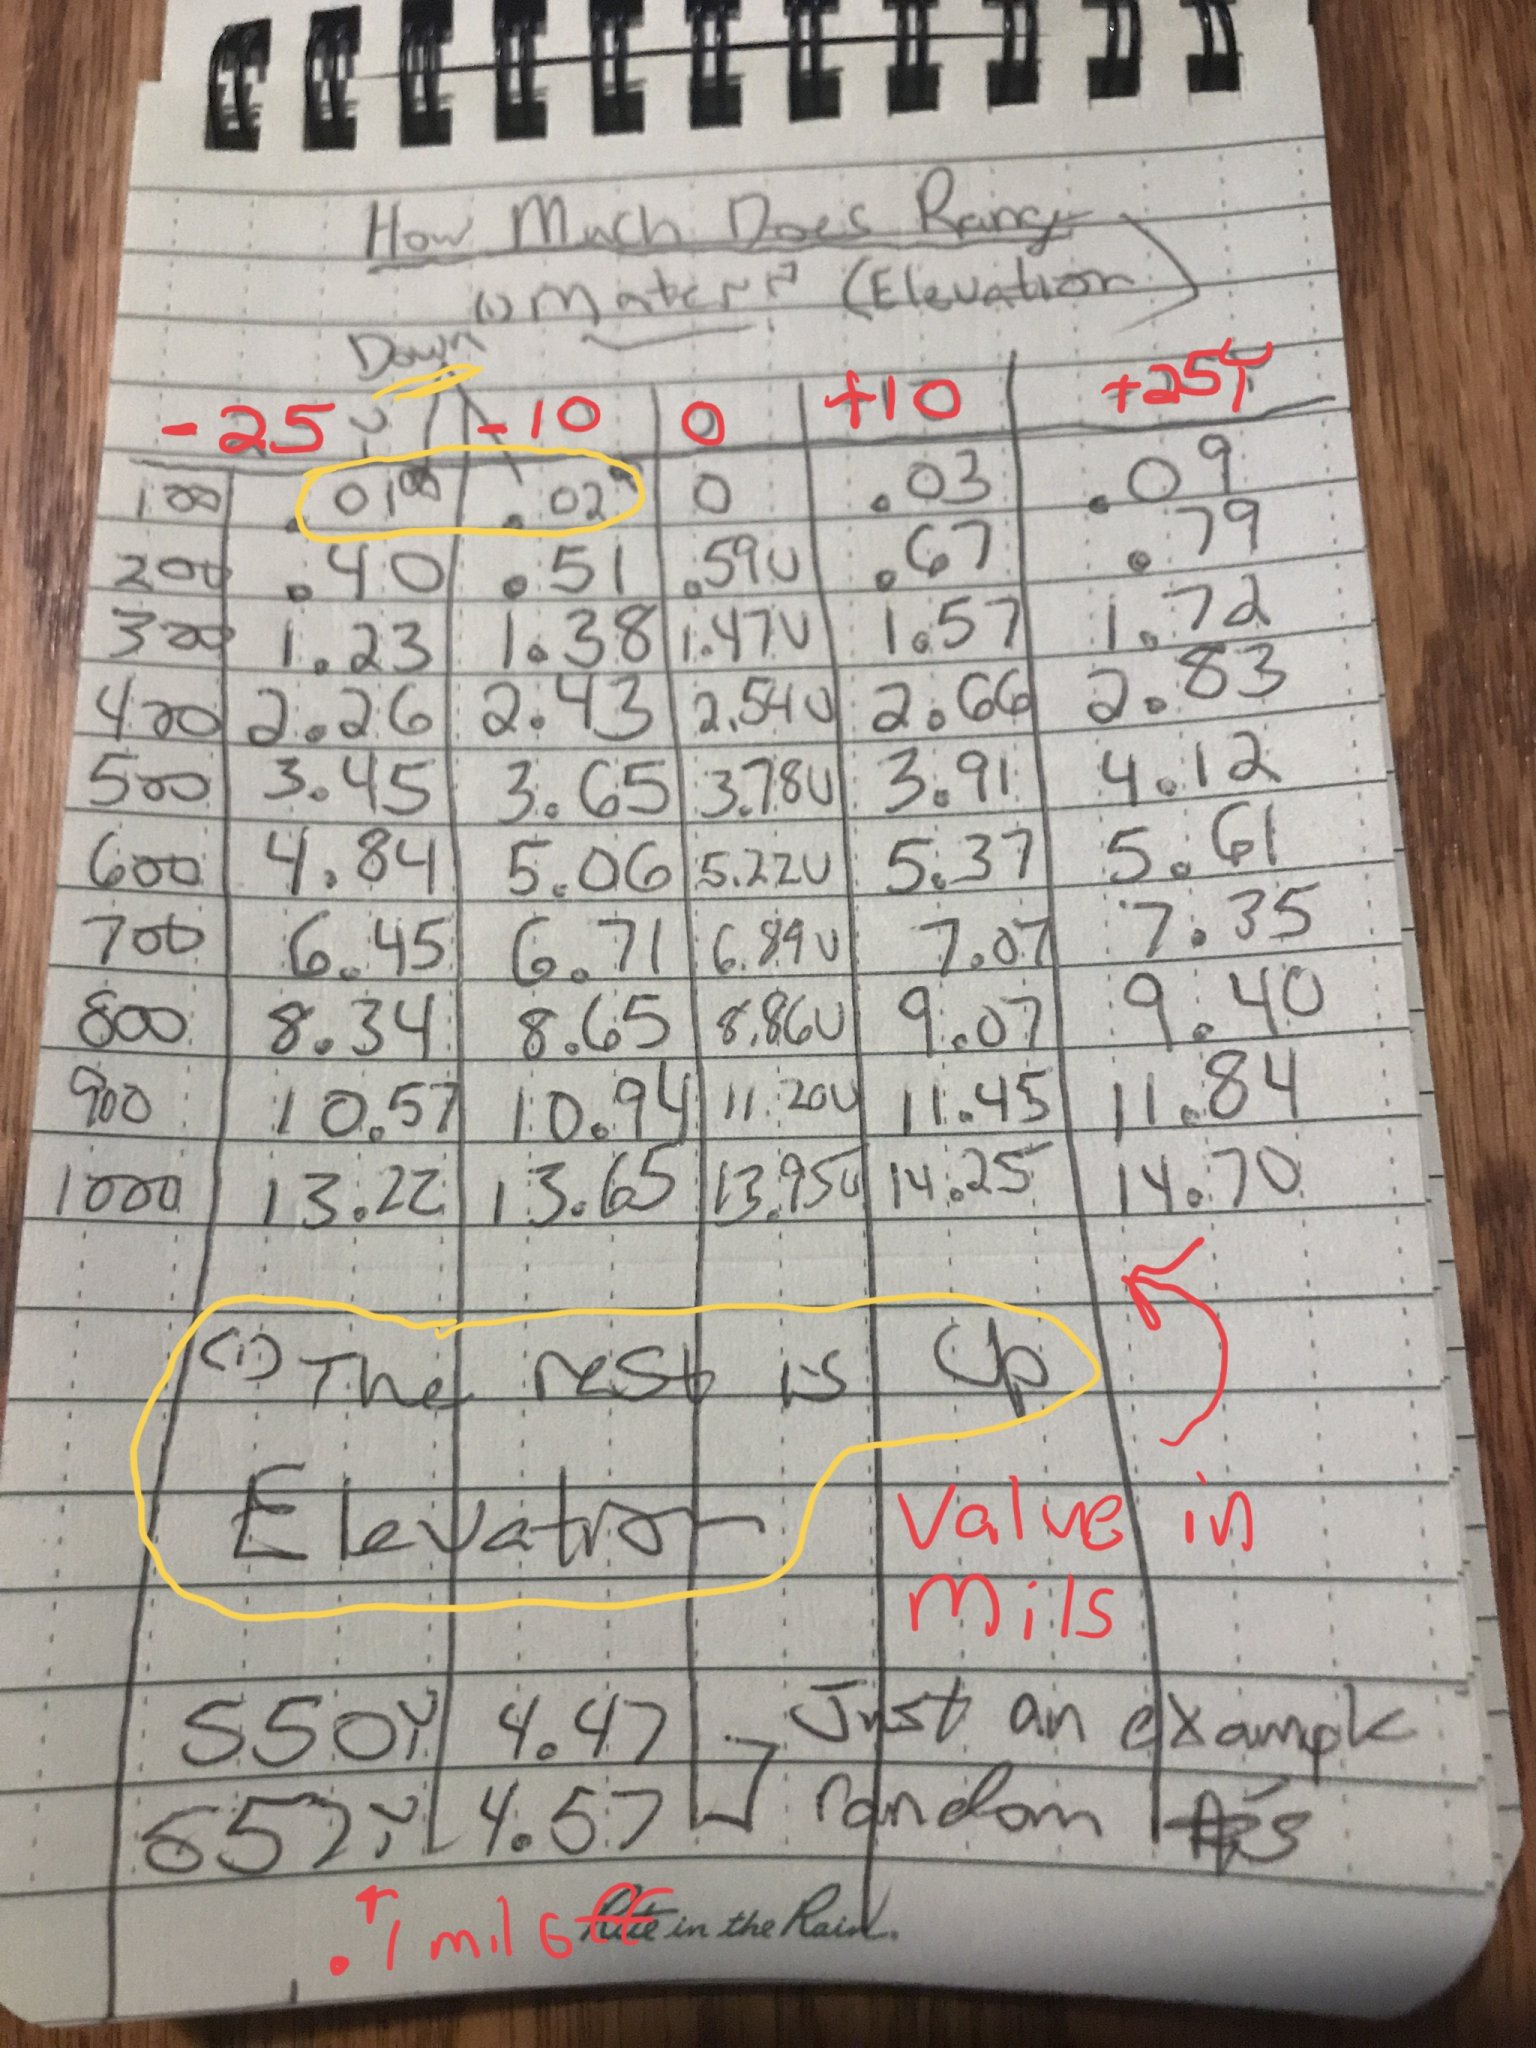 How Much Does Range
(1) Mater?? (Elevation)
Down
-25 Y -10 0 +10 +25Y
100 .01 .02 0 .03 .09
200 .40 .51 .59U .67 .79
300 1.23 1.38 1.47U 1.57 1.72
400 2.26 2.43 2.54U 2.66 2.83
500 3.45 3.65 3.78U 3.91 4.12
600 4.84 5.06 5.22U 5.37 5.61
700 6.45 6.71 6.89U 7.07 7.35
800 8.34 8.65 8.86U 9.07 9.40
900 10.57 10.94 11.20U 11.45 11.84
1000 13.22 13.65 13.95U 14.25 14.70
(1) The rest is Up
Elevation
Value in
Mils
550Y 4.47 Just an example
557Y 4.57 random #'s
.1 mil off
Rite in the Rain.